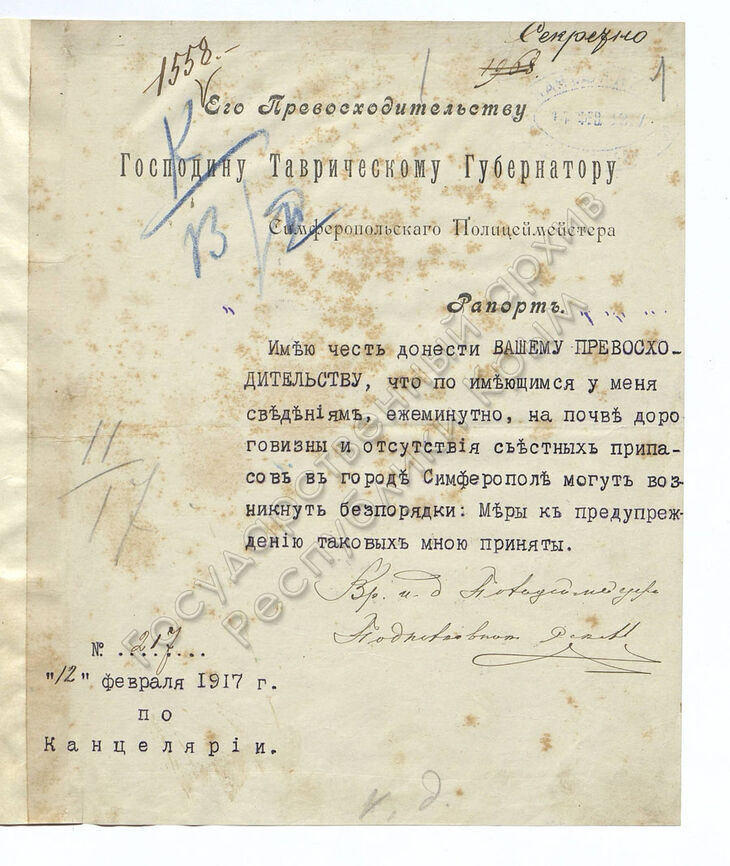 Секретно
1558.-
1968
1
Его Превосходительству
Господину Таврическому Губернатору
К
В
Симферопольскаго Полицеймейстера
Рапортъ.
Имѣю честь донести ВАШЕМУ ПРЕВОСХО-
ДИТЕЛЬСТВУ, что по имѣющимся у меня
свѣдѣніямъ, ежеминутно, на почвѣ доро
говизны и отсутствія сьѣстныхъ припа-
совъ въ городѣ Симферополѣ могутъ воз-
никнуть безпорядки: Мѣры къ предупреж-
денію таковыхъ мною приняты.
11/17
Вр. и. д. Полицеймейстера
Подполковникъ
№ .217...
"12" февраля 1917 г.
по
Канцеляріи.
Государственный архив
Республики Крым